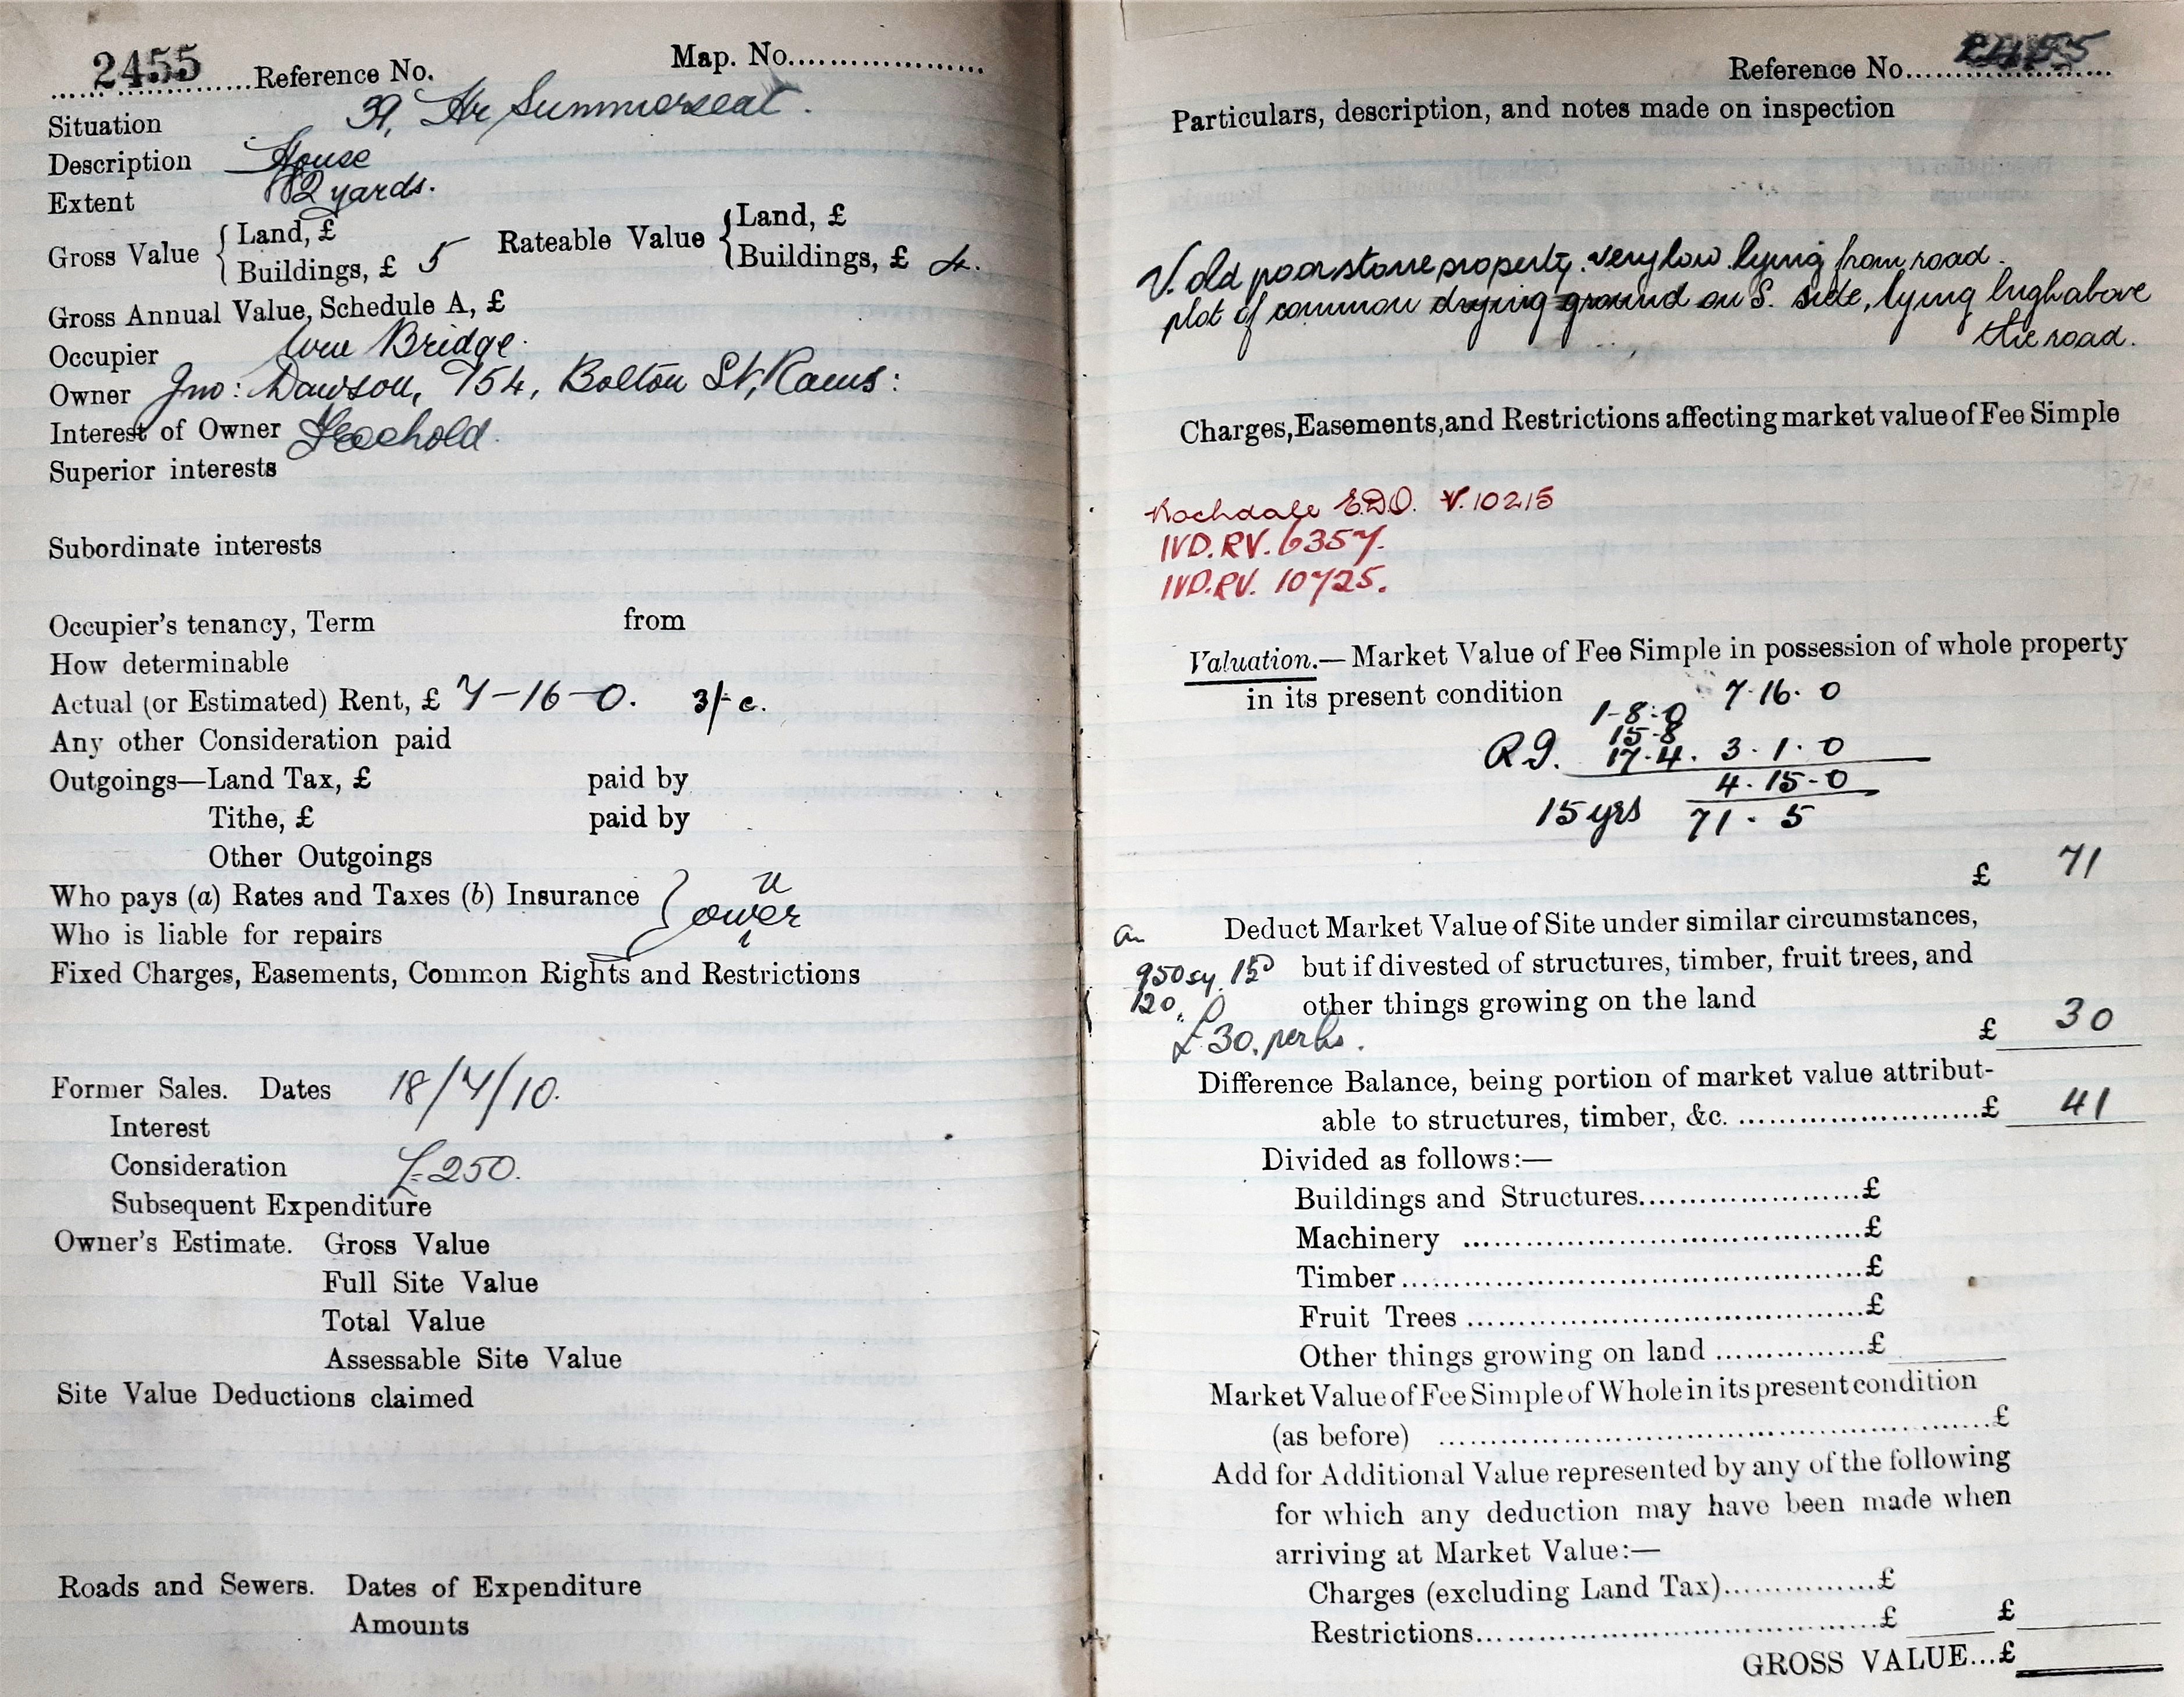 2455 Reference No. Map. No.
Situation 39, Hr Summerseat.
Description House
Extent 82 yards.
Gross Value { Land, £ Rateable Value { Land, £
Buildings, £ 5 Buildings, £ 4.
Gross Annual Value, Schedule A, £
Occupier Wm Bridge.
Owner Jno: Dawson, 154, Bolton St, Rams:
Interest of Owner Freehold.
Superior interests
Subordinate interests
Occupier's tenancy, Term from
How determinable
Actual (or Estimated) Rent, £ 7-16-0. 3/- c.
Any other Consideration paid
Outgoings—Land Tax, £ paid by
Tithe, £ paid by
Other Outgoings
Who pays (a) Rates and Taxes (b) Insurance
Who is liable for repairs
Fixed Charges, Easements, Common Rights and Restrictions
Former Sales. Dates 18/7/10.
Interest
Consideration £250.
Subsequent Expenditure
Owner's Estimate. Gross Value
Full Site Value
Total Value
Assessable Site Value
Site Value Deductions claimed
Roads and Sewers. Dates of Expenditure
Amounts
Reference No. 2455
Particulars, description, and notes made on inspection
V. old poor stone property. very low lying from road.
plot of common drying ground on S. side, lying high above
the road.
Charges, Easements, and Restrictions affecting market value of Fee Simple
Rochdale E.D.O. V.10215
IVD.RV. 6357.
IVD.RV. 10725.
Valuation.—Market Value of Fee Simple in possession of whole property
in its present condition 7-16. 0
1-8:0
15-8
17.4. 3.1.0
4.15-0
15 yrs 71.5
£ 71
Deduct Market Value of Site under similar circumstances,
950 sy. but if divested of structures, timber, fruit trees, and
120. other things growing on the land
£30. per hs. £ 30
Difference Balance, being portion of market value attribut-
able to structures, timber, &c. £ 41
Divided as follows:—
Buildings and Structures £
Machinery £
Timber £
Fruit Trees £
Other things growing on land £
Market Value of Fee Simple of Whole in its present condition
(as before) £
Add for Additional Value represented by any of the following
for which any deduction may have been made when
arriving at Market Value:—
Charges (excluding Land Tax) £
Restrictions £ £
GROSS VALUE...£